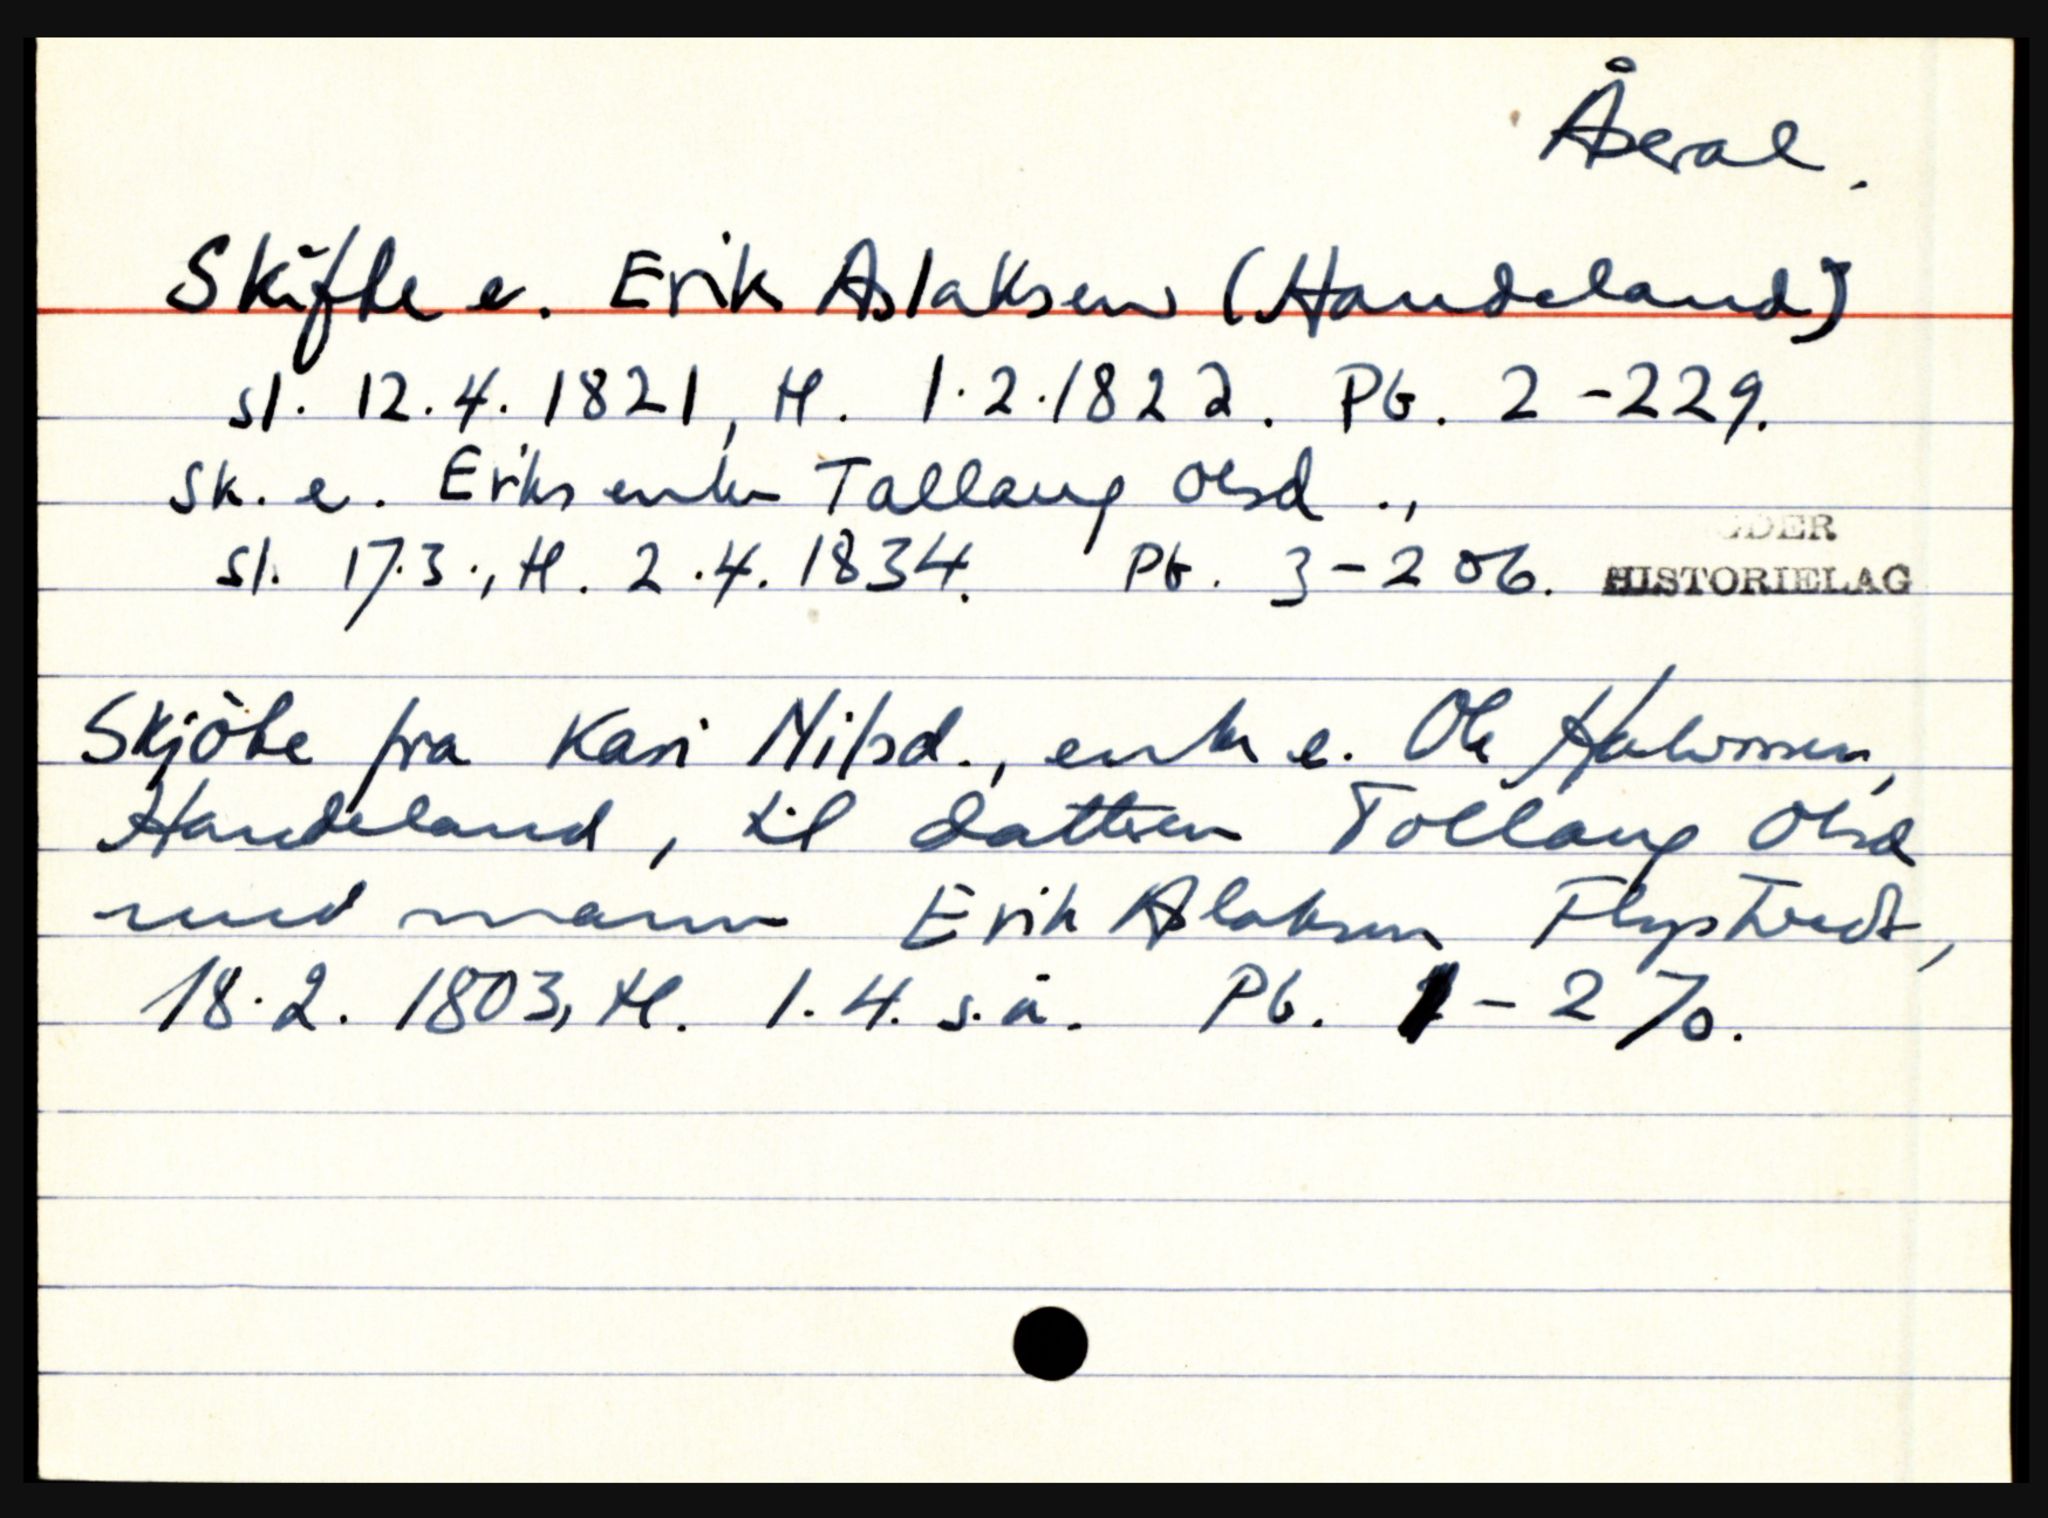 Åseral.
Skifte e. Erik Aslaksen (Handeland)
sl. 12.4.1821, tl. 1.2.1822. Pb. 2-229.
Sk. e. Eriks enke Tallaug Olsd.,
sl. 17.3., tl. 2.4.1834. Pb. 3-206.
GDER
HISTORIELAG
Skjöte fra Kari Nilsd., enke e. Ole Halvorsen,
Handeland, til datteren Tollaug Olsd
med mann Erik Aslaksen
18.2.1803, tl. 1.4. s.å. Pb. 1-270.